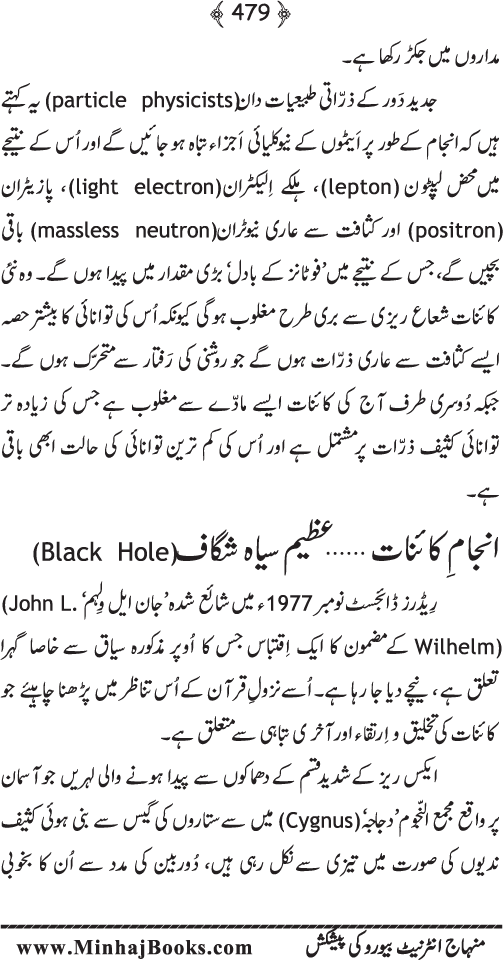 ﴿ 479 ﴾
مداروں میں جکڑ رکھا ہے۔
جدید دَور کے ذرّاتی طبیعیات دان(particle physicists) یہ کہتے
ہیں کہ انجام کے طور پر اَیٹموں کے نیوکلیائی اَجزاء تباہ ہو جائیں گے اور اُس کے نتیجے
میں محض لپٹون (lepton)، ہلکے اِلیکٹران(light electron)، پازیٹران
(positron) اور کثافت سے عاری نیوٹران(massless neutron) باقی
بچیں گے، جس کے نتیجے میں ’فوٹانز کے بادل‘ بڑی مقدار میں پیدا ہوں گے۔ وہ نئی
کائنات شعاع ریزی سے بری طرح مغلوب ہوگی کیونکہ اُس کی توانائی کا بیشتر حصہ
ایسے کثافت سے عاری ذرّات ہوں گے جو روشنی کی رَفتار سے متحرّک ہوں گے۔
جبکہ دُوسری طرف آج کی کائنات ایسے مادّے سے مغلوب ہے جس کی زیادہ تر
توانائی کثیف ذرّات پر مشتمل ہے اور اُس کی کم ترین توانائی کی حالت ابھی باقی
ہے۔
انجامِ کائنات ......عظیم سیاہ شگاف(Black Hole)
رِیڈرز ڈائجسٹ نومبر 1977ء میں شائع شدہ ’جان ایل وِلہم‘ (John L.
Wilhelm) کے مضمون کا ایک اِقتباس جس کا اُوپر مذکورہ سیاق سے خاصا گہرا
تعلق ہے، نیچے دیا جا رہا ہے۔ اُسے نزولِ قرآن کے اُس تناظر میں پڑھنا چاہیئے جو
کائنات کی تخلیق و اِرتقاء اور آخری تباہی سے متعلق ہے۔
ایکس ریز کے شدید قسم کے دھماکوں سے پیدا ہونے والی لہریں جو آسمان
پر واقع مجمع النّجوم ’دجاجہ‘(Cygnus) میں سے ستاروں کی گیس سے بنی ہوئی کثیف
ندیوں کی صورت میں تیزی سے نکل رہی ہیں، دُوربین کی مدد سے اُن کا بخوبی
www.MinhajBooks.com منہاج انٹرنیٹ بیورو کی پیشکش